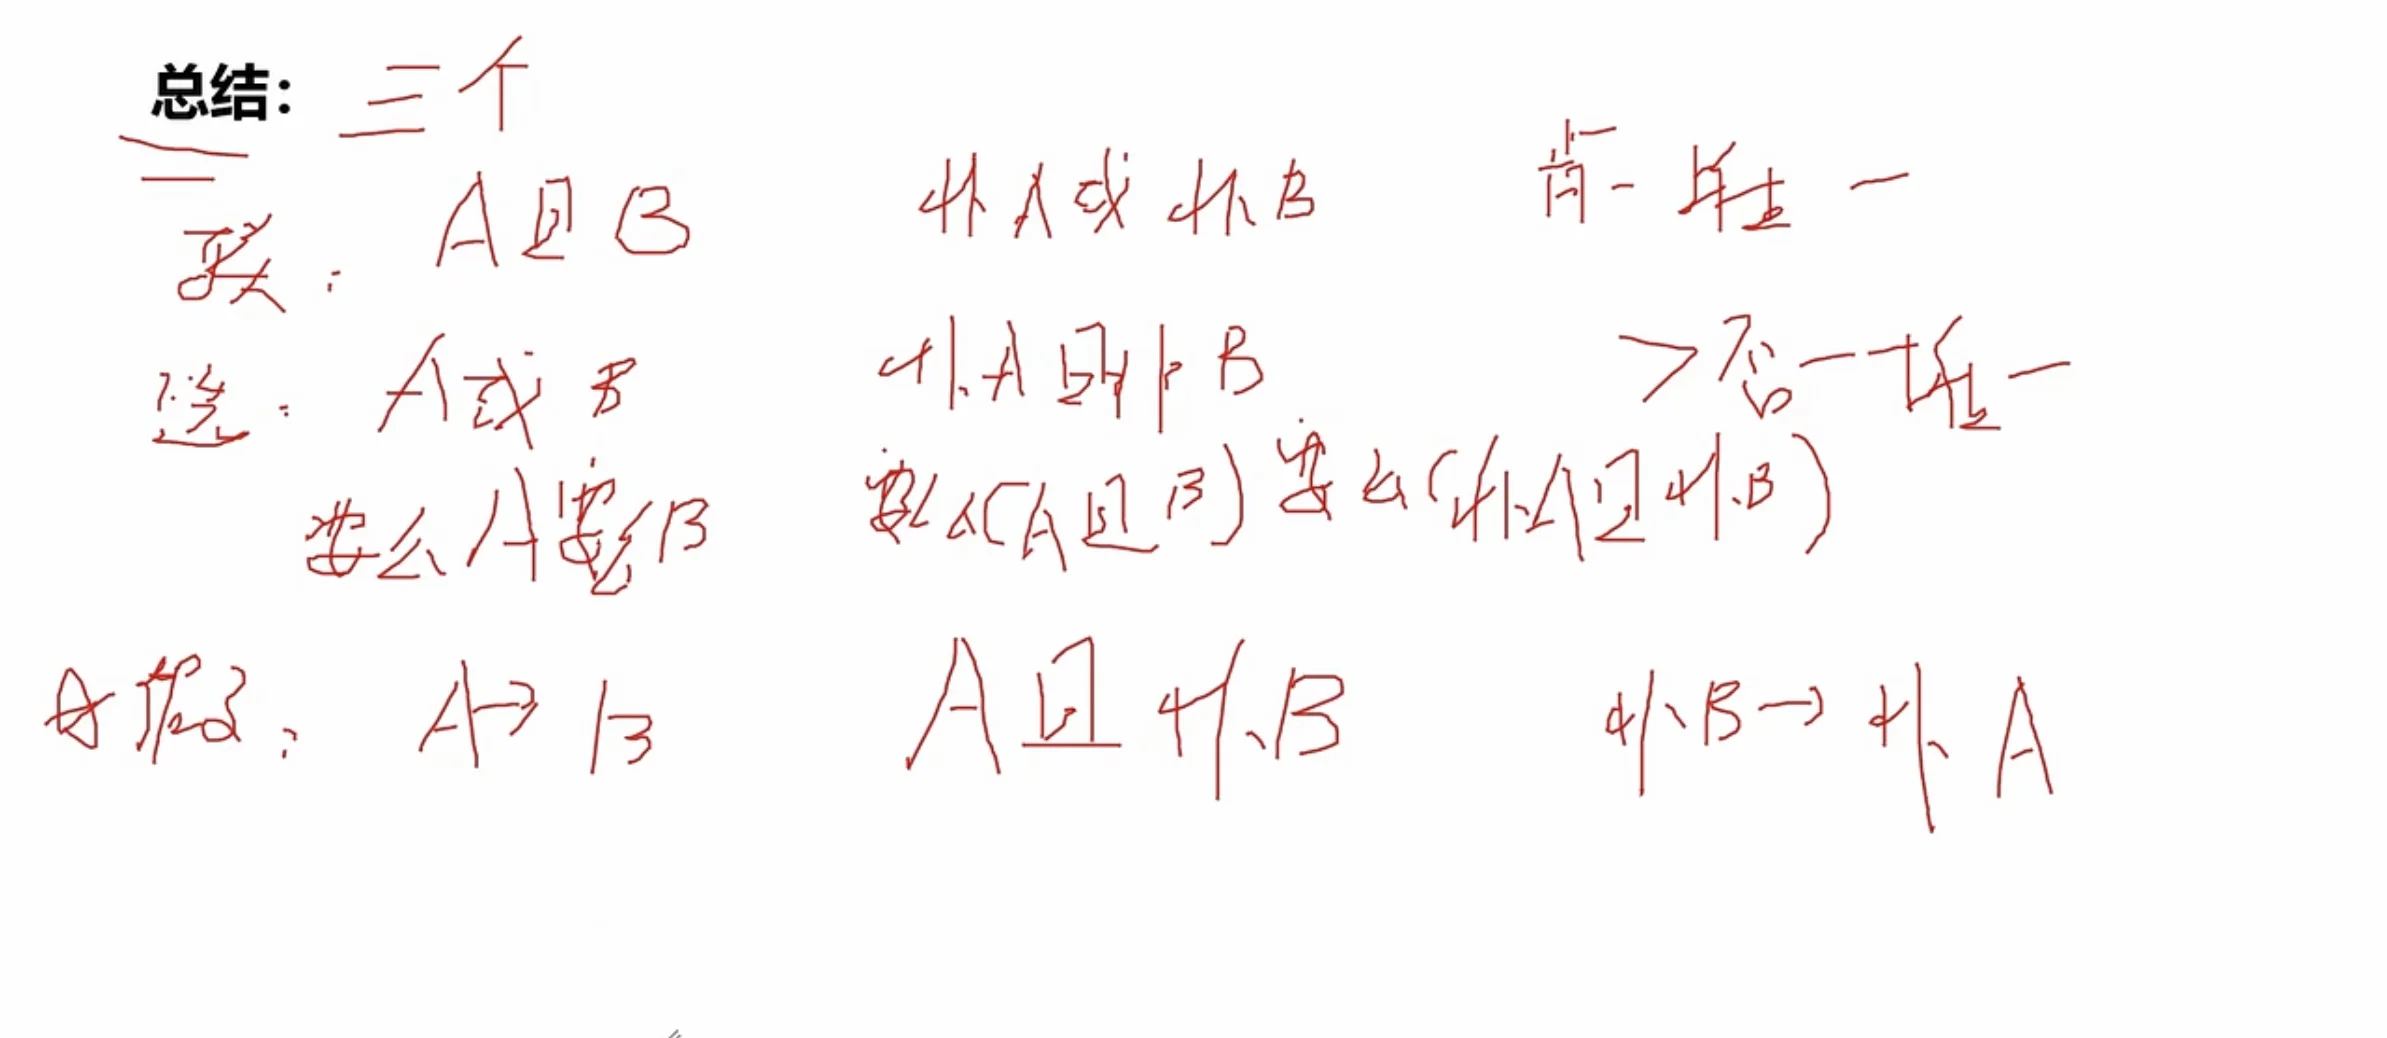 总结：三个
联： A且B 非A或非B 肯一推一
选： A或B 非A且非B >否一推一
要么A要么B 要么(A且B)要么(非A且非B)
假： A→B A且非B 非B→非A